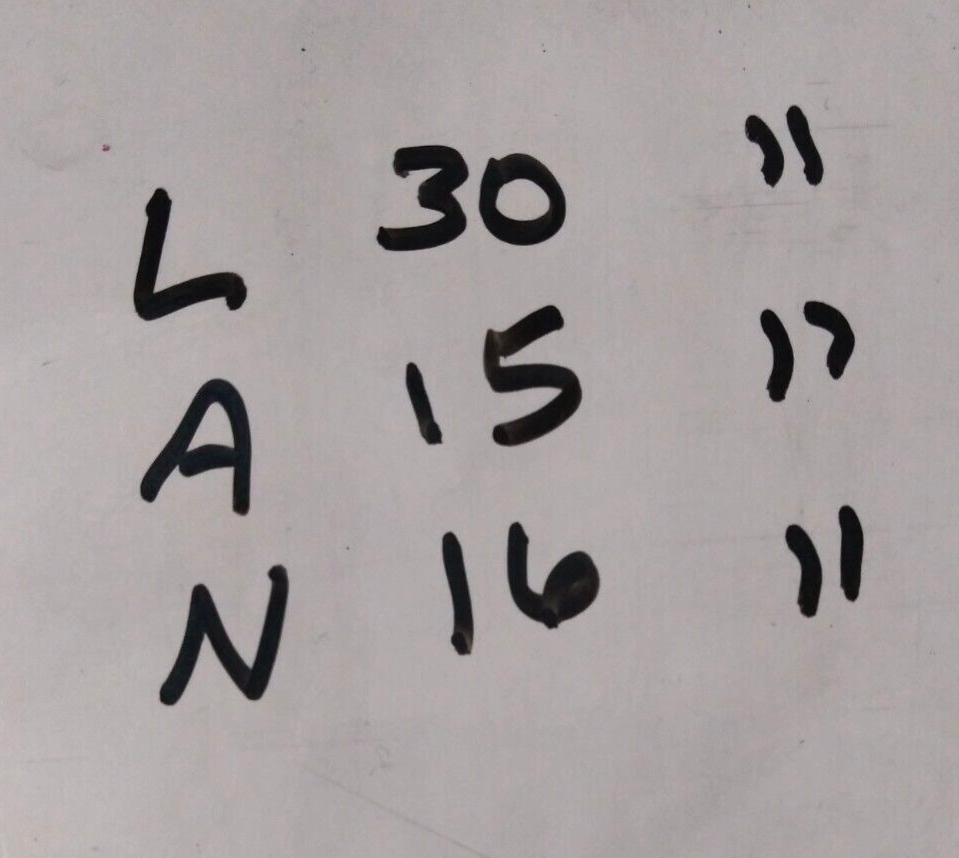 L 30 "
A 15 "
N 16 "